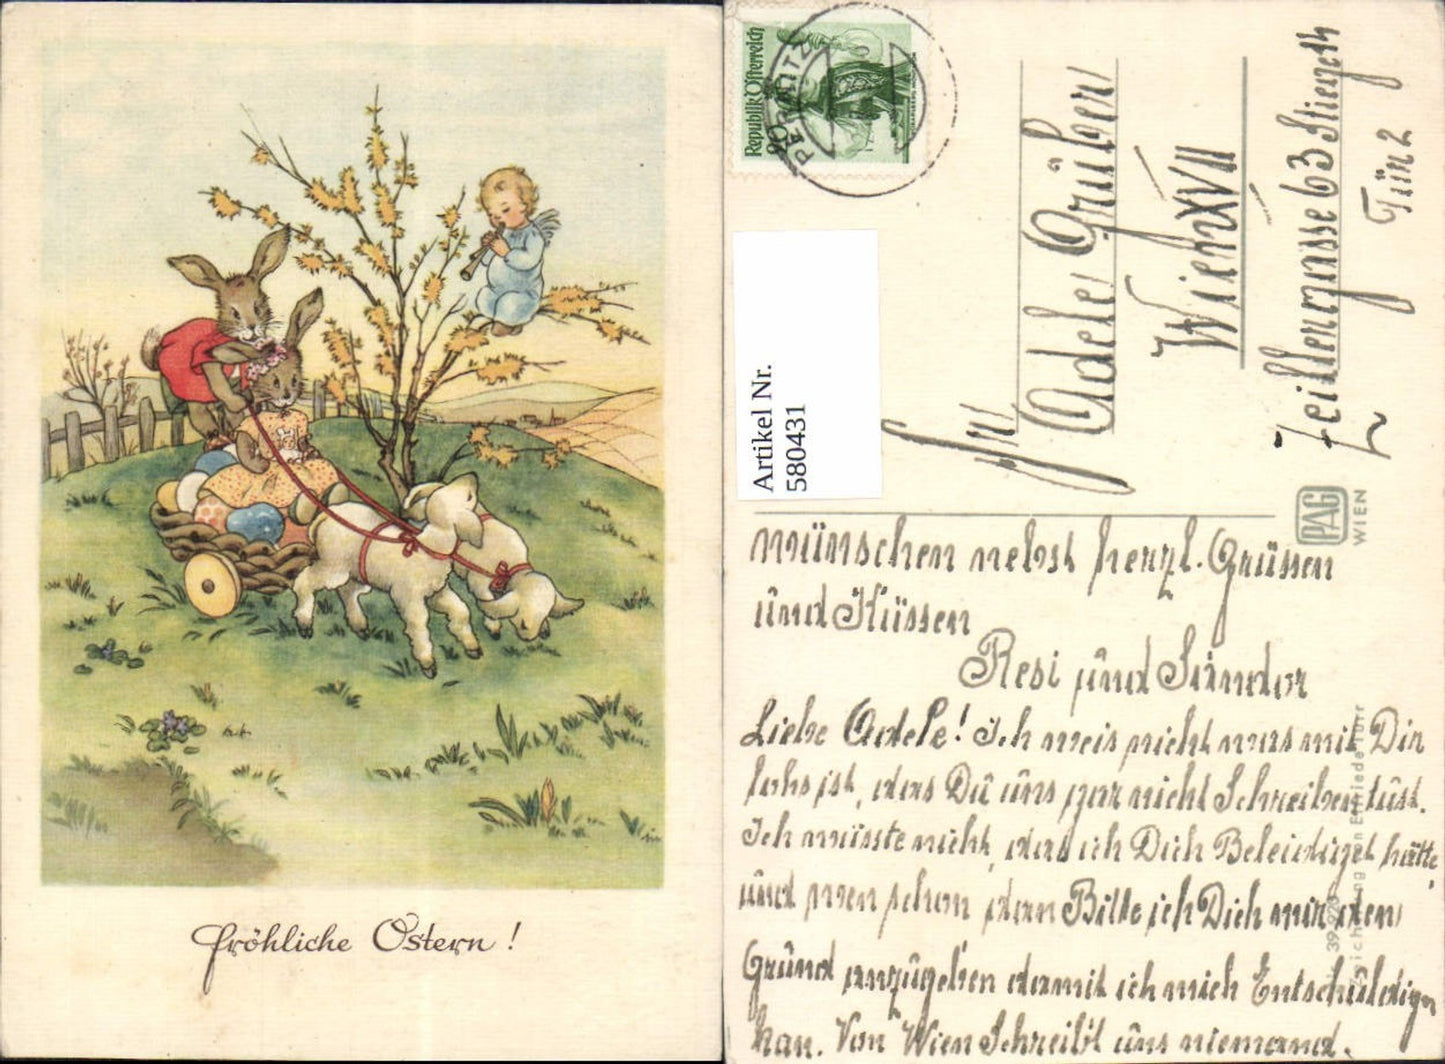 Fröhliche Ostern!
Republik Österreich
PERNITZ
Artikel Nr.
580431
An
Adele Grüber
Wien XVII
Zeillergasse 63 Stiege 14
Tür 2
PAG
WIEN
wünschen nebst herzl. Grüssen
und Küssen
Resi und Sandor
Liebe Adele! Ich weis nicht was mit Dir
los ist, das Du uns gar nicht Schreiben tust.
Ich wüsste nicht, das ich Dich Beleidiget hätte,
und wen schon dan Bitte ich Dich mir den
Grund anzugeben damit ich mich Entschuldigen
kan. Von Wien Schreibt uns niemand.